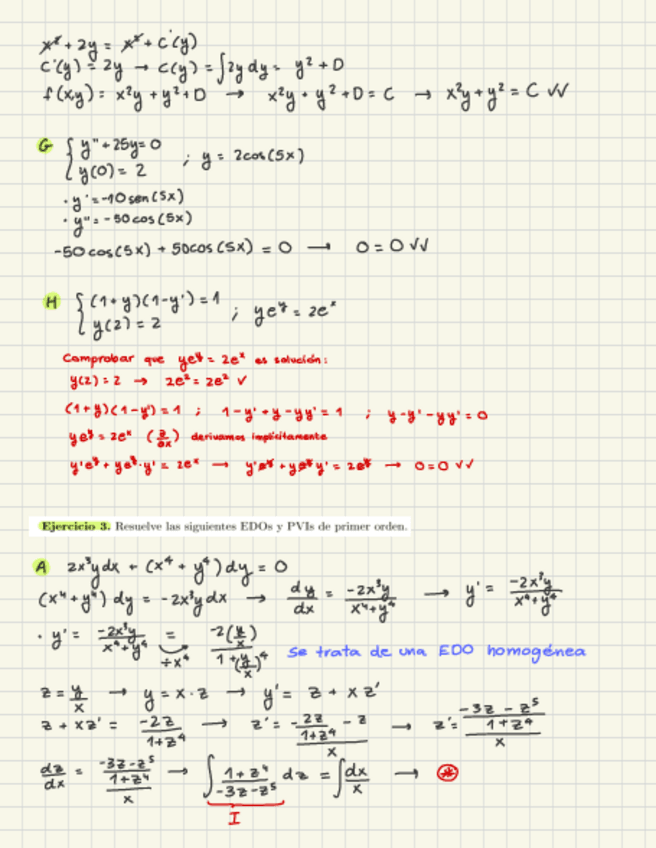 x² + 2y = x² + C'(y)
C'(y) = 2y → C(y) = ∫2y dy = y² + D
f(x,y) = x²y + y² + D → x²y + y² + D = C → x²y + y² = C √√
G { y'' + 25y = 0 ; y = 2cos(5x)
y(0) = 2
· y' = -10 sen(5x)
· y'' = -50 cos(5x)
-50cos(5x) + 50cos(5x) = 0 → 0 = 0 √√
H { (1+y)(1-y') = 1 ; ye^y = 2e^x
y(2) = 2
Comprobar que ye^y = 2e^x es solución:
y(2) = 2 → 2e² = 2e² √
(1+y)(1-y') = 1 ; 1 - y' + y - yy' = 1 ; y - y' - yy' = 0
ye^y = 2e^x (∂/∂x) derivamos implícitamente
y'e^y + ye^y·y' = 2e^x → y'e^y + ye^y y' = 2e^x → 0=0 √√
Ejercicio 3. Resuelve las siguientes EDOs y PVIs de primer orden.
A 2x³y dx + (x⁴ + y⁴) dy = 0
(x⁴ + y⁴) dy = -2x³y dx → dy/dx = -2x³y/(x⁴+y⁴) → y' = -2x³y/(x⁴+y⁴)
· y' = -2x³y/(x⁴+y⁴) = ÷x⁴ -2(y/x)/(1+(y/x)⁴) Se trata de una EDO homogénea
z = y/x → y = x·z → y' = z + xz'
z + xz' = -2z/(1+z⁴) → z' = (-2z/(1+z⁴) - z)/x → z' = ((-3z - z⁵)/(1+z⁴))/x
dz/dx = ((-3z-z⁵)/(1+z⁴))/x → ∫ (1+z⁴)/(-3z-z⁵) dz = ∫dx/x → ⊛
I